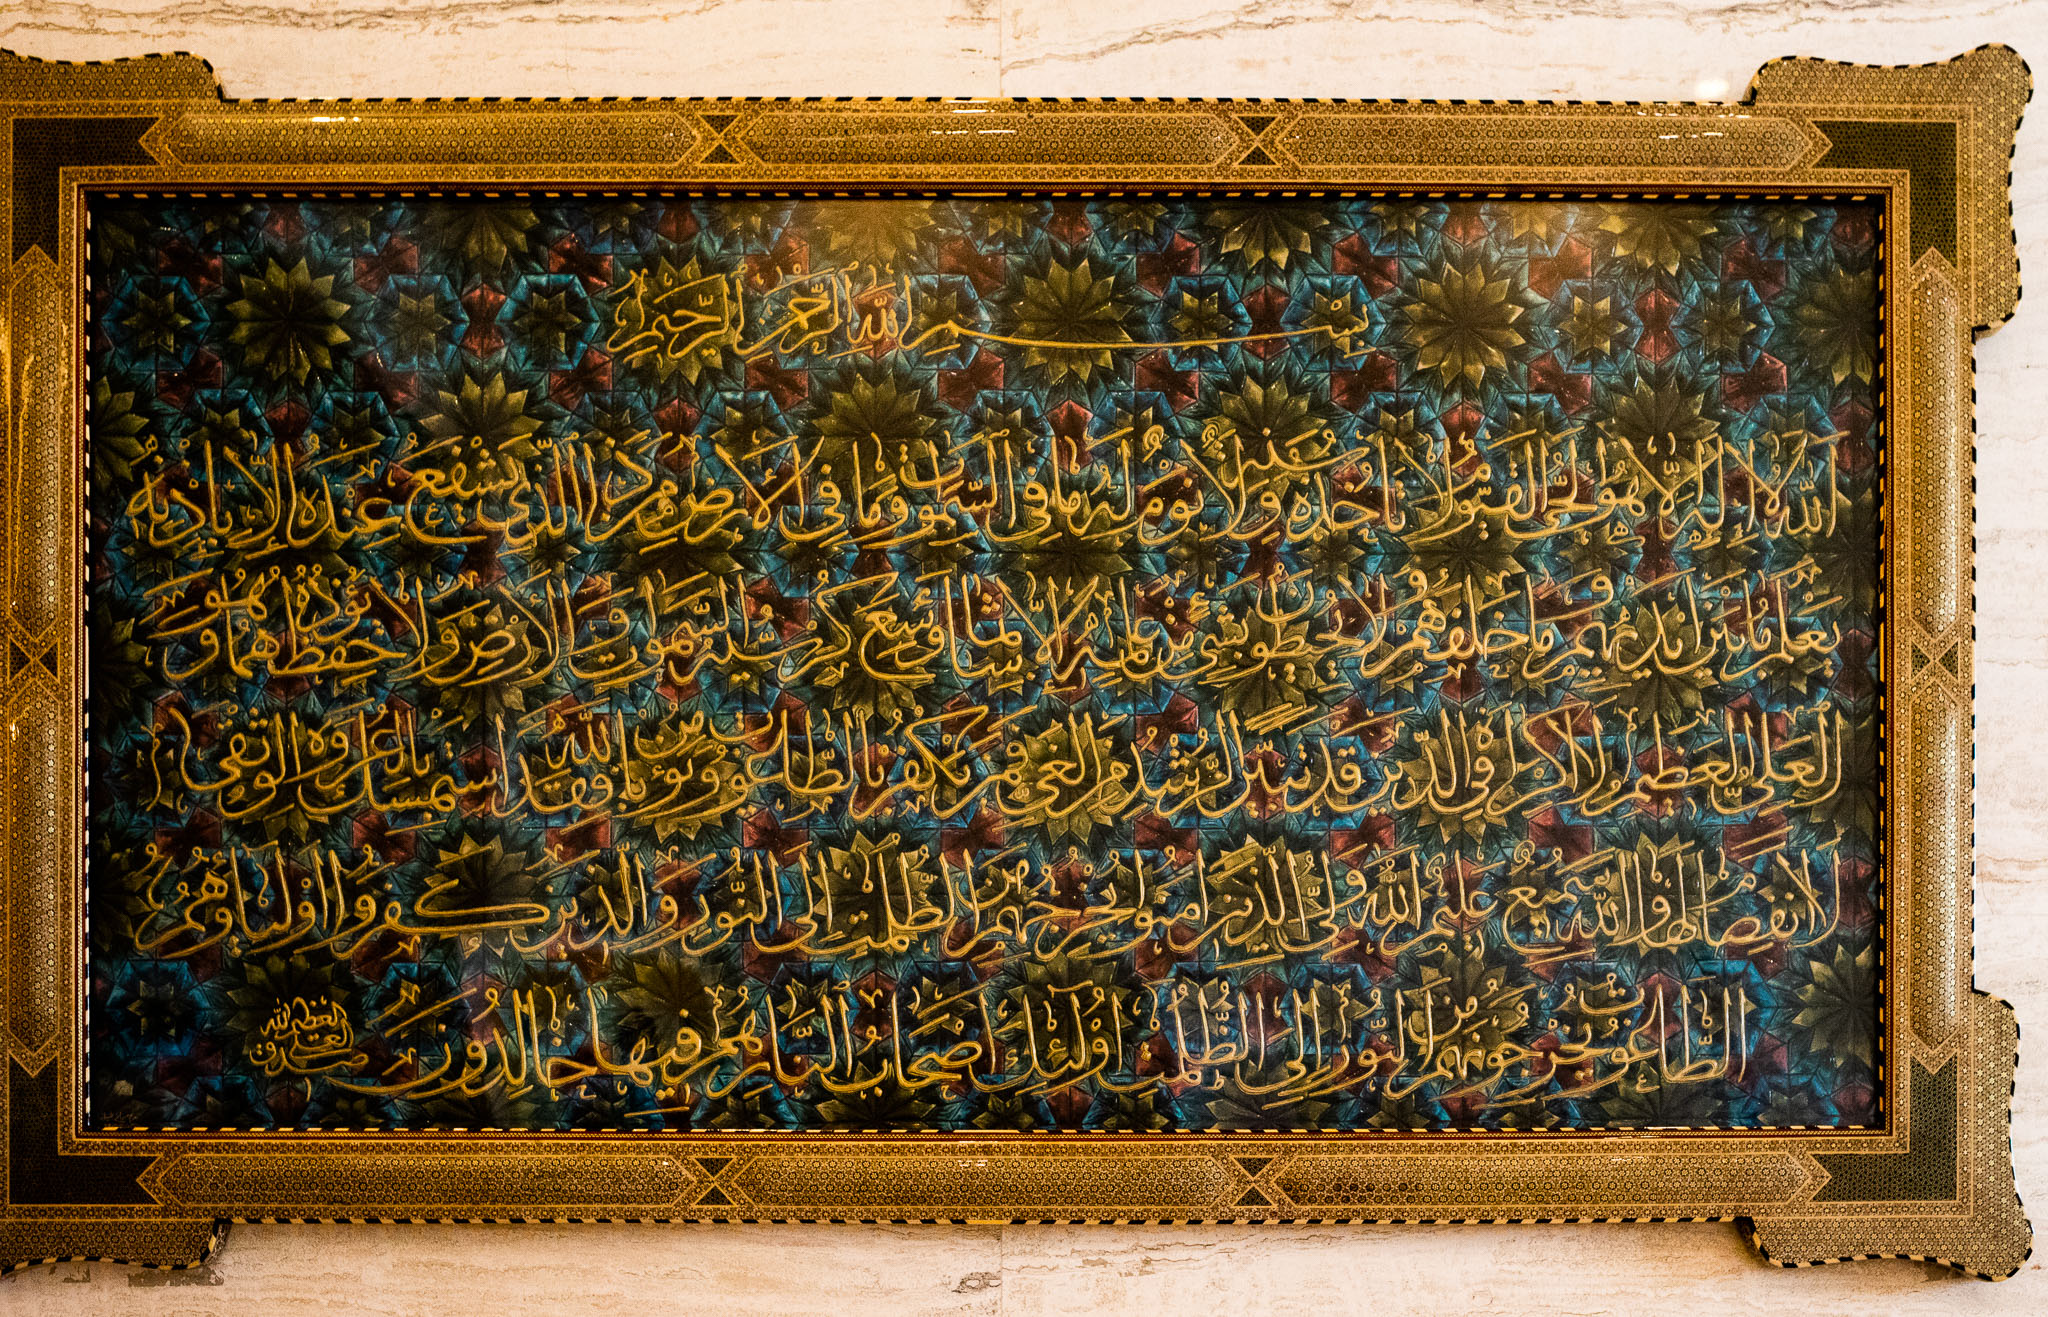 بِسْمِ اللَّهِ الرَّحْمٰنِ الرَّحِيمِ
اللَّهُ لَا إِلٰهَ إِلَّا هُوَ الْحَيُّ الْقَيُّومُ لَا تَأْخُذُهُ سِنَةٌ وَلَا نَوْمٌ لَهُ مَا فِي السَّمٰوَاتِ وَمَا فِي الْأَرْضِ مَنْ ذَا الَّذِي يَشْفَعُ عِنْدَهُ إِلَّا بِإِذْنِهِ
يَعْلَمُ مَا بَيْنَ أَيْدِيهِمْ وَمَا خَلْفَهُمْ وَلَا يُحِيطُونَ بِشَيْءٍ مِنْ عِلْمِهِ إِلَّا بِمَا شَاءَ وَسِعَ كُرْسِيُّهُ السَّمٰوَاتِ وَالْأَرْضَ وَلَا يَئُودُهُ حِفْظُهُمَا وَهُوَ
الْعَلِيُّ الْعَظِيمُ لَا إِكْرَاهَ فِي الدِّينِ قَدْ تَبَيَّنَ الرُّشْدُ مِنَ الْغَيِّ فَمَنْ يَكْفُرْ بِالطَّاغُوتِ وَيُؤْمِنْ بِاللَّهِ فَقَدِ اسْتَمْسَكَ بِالْعُرْوَةِ الْوُثْقَىٰ
لَا انْفِصَامَ لَهَا وَاللَّهُ سَمِيعٌ عَلِيمٌ اللَّهُ وَلِيُّ الَّذِينَ آمَنُوا يُخْرِجُهُمْ مِنَ الظُّلُمٰتِ إِلَى النُّورِ وَالَّذِينَ كَفَرُوا أَوْلِيَاؤُهُمُ
الطَّاغُوتُ يُخْرِجُونَهُمْ مِنَ النُّورِ إِلَى الظُّلُمٰتِ أُولٰئِكَ أَصْحَابُ النَّارِ هُمْ فِيهَا خَالِدُونَ
صدق الله العلي العظيم